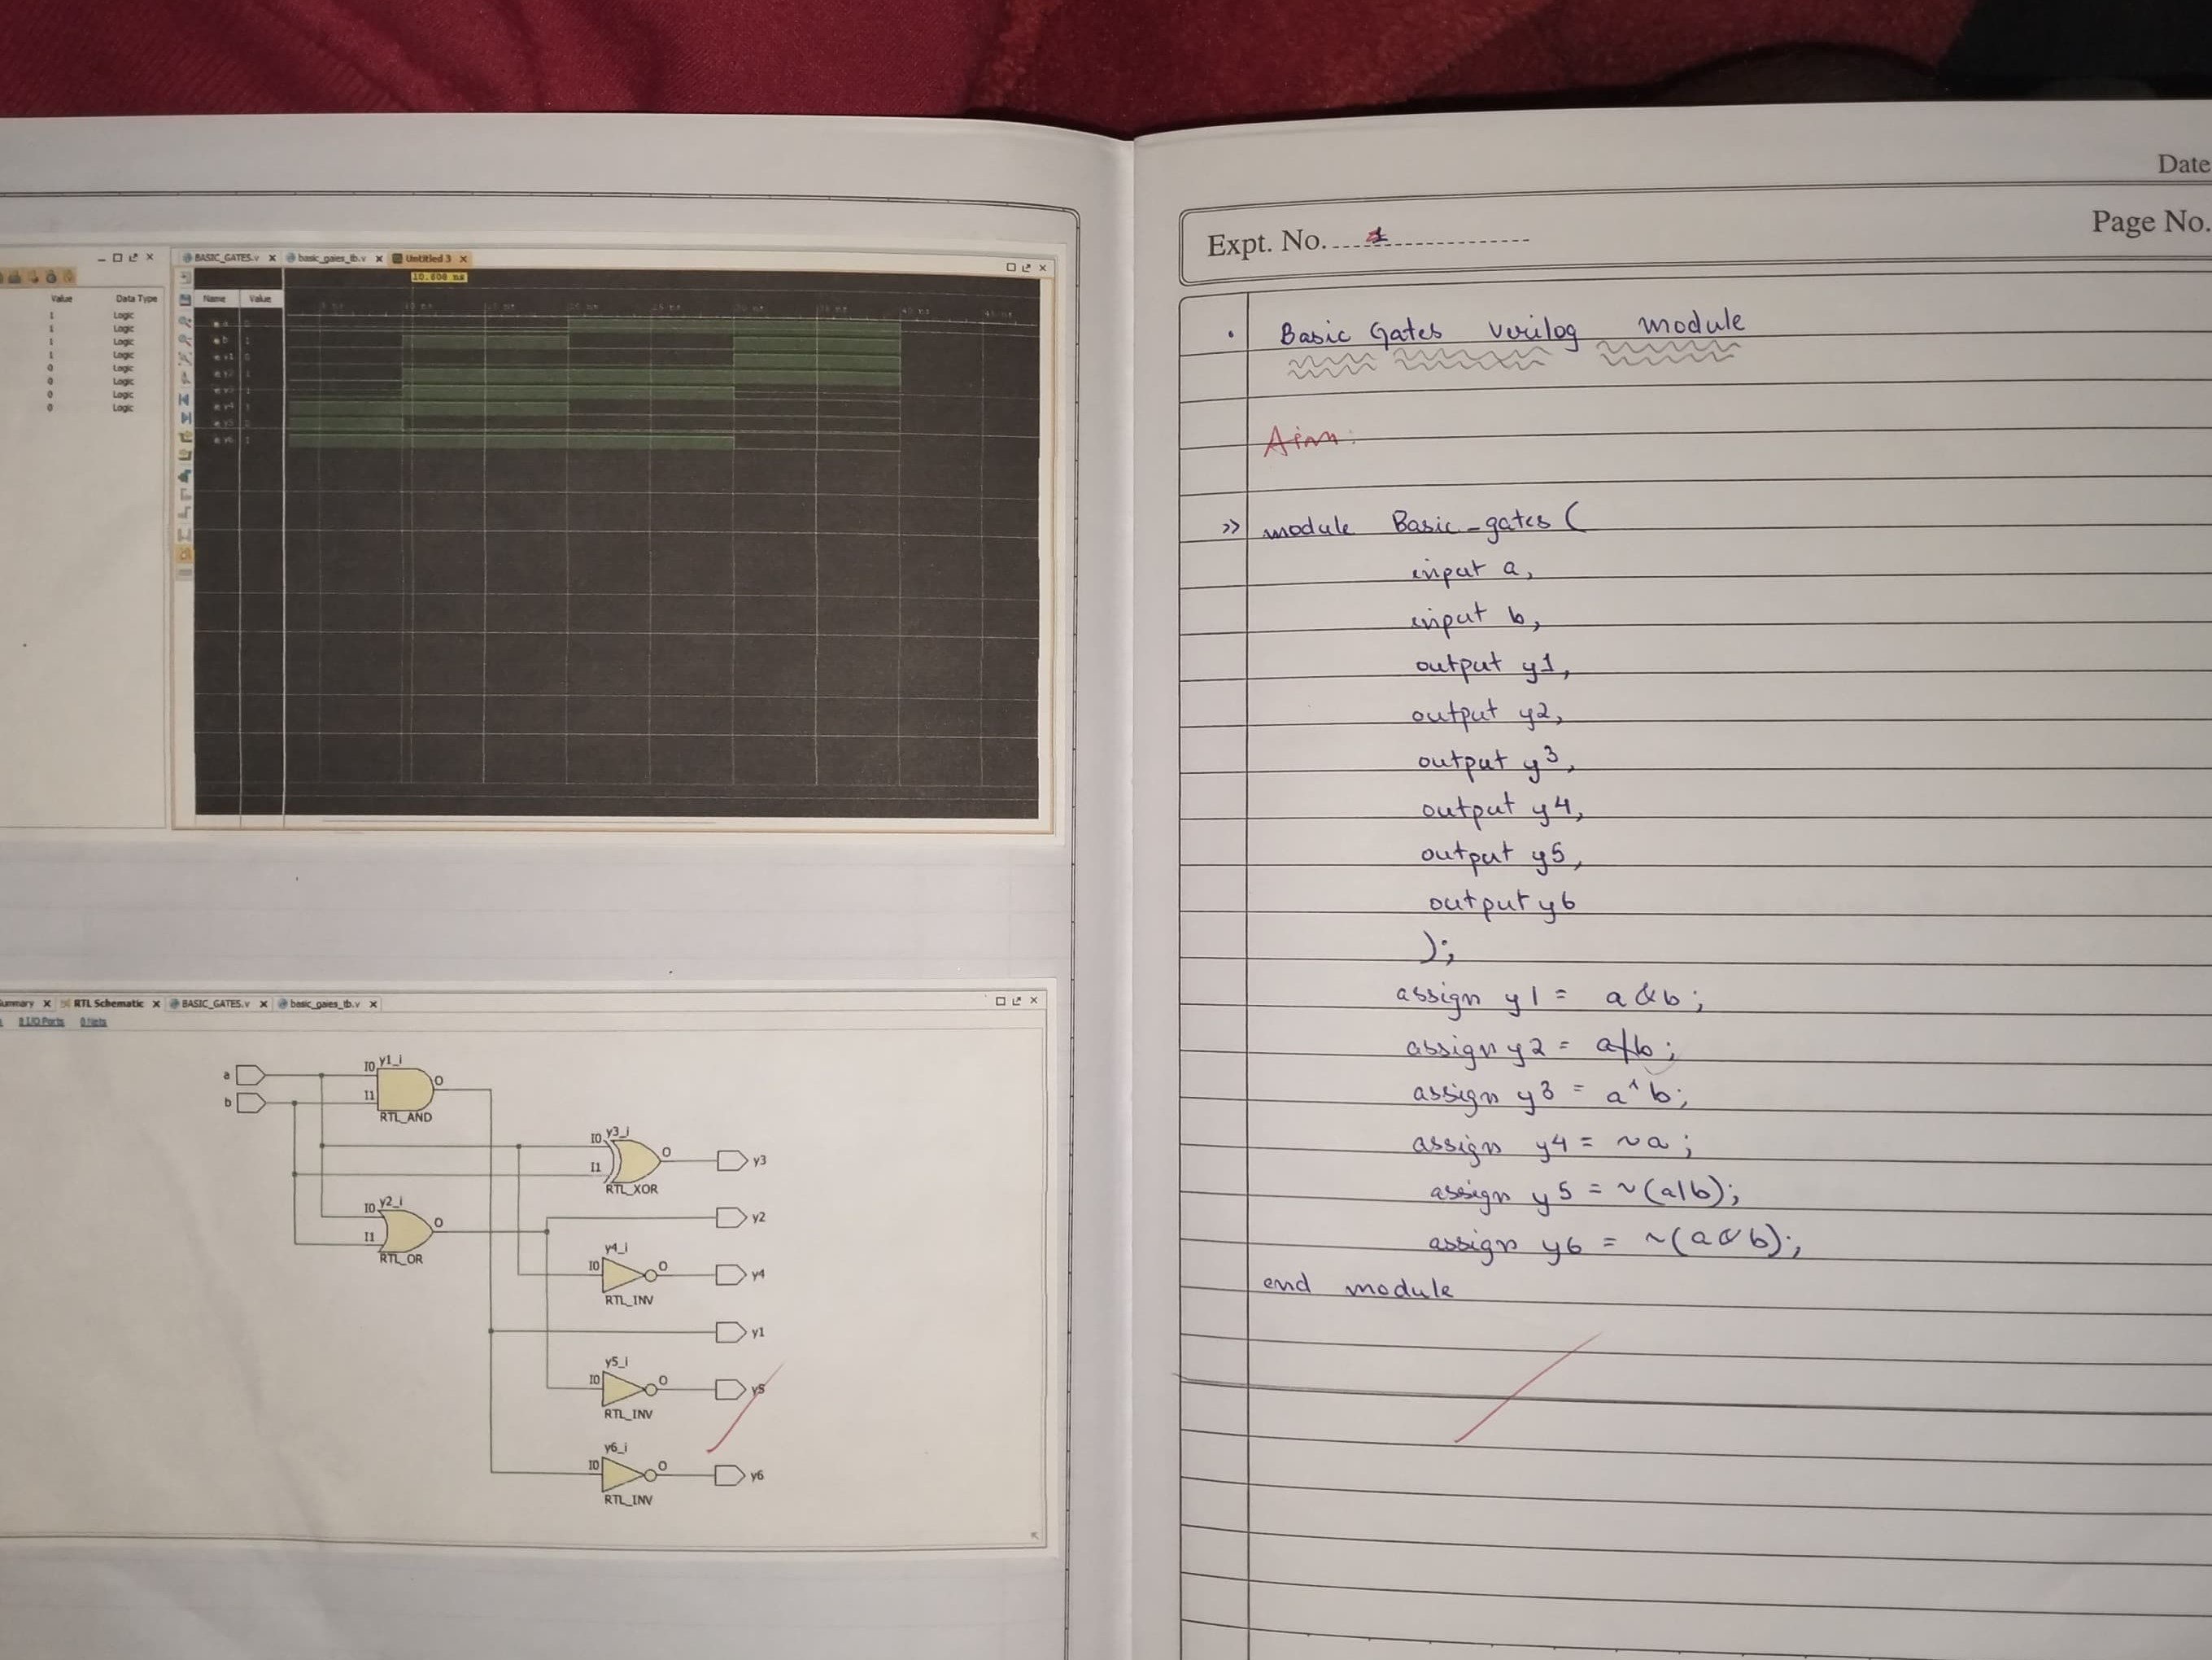 Value Data Type
1 Logic
1 Logic
1 Logic
1 Logic
0 Logic
0 Logic
0 Logic
0 Logic
BASIC_GATES.v basic_gates_tb.v Untitled 3
10.600 ns
Name Value
RTL Schematic BASIC_GATES.v basic_gates_tb.v
8 I/O Ports 0 Nets
a
b
I0 y1_i
I1
O
RTL_AND
I0 y3_i
I1
O
RTL_XOR
y3
I0 y2_i
I1
O
RTL_OR
y2
y4_i
I0
O
RTL_INV
y4
y1
y5_i
I0
O
RTL_INV
y5
y6_i
I0
O
RTL_INV
y6
Date
Page No.
Expt. No. 1
Basic Gates Verilog module
Aim:
>> module Basic_gates (
input a,
input b,
output y1,
output y2,
output y3,
output y4,
output y5,
output y6
);
assign y1 = a & b;
assign y2 = a|b;
assign y3 = a^b;
assign y4 = ~a;
assign y5 = ~(a|b);
assign y6 = ~(a & b);
end module